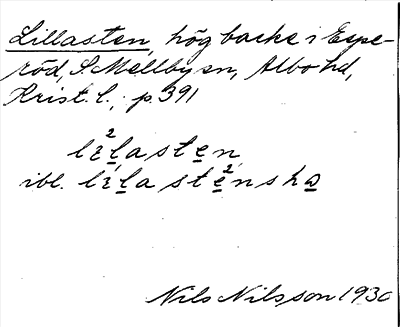 Lillasten, hög backe i Espe-
röd, S. Mellby sn, Albo hd,
Krist. l., p. 391
lɪ²lasten
ibl. lɪla ste²nsha
Nils Nilsson 1930